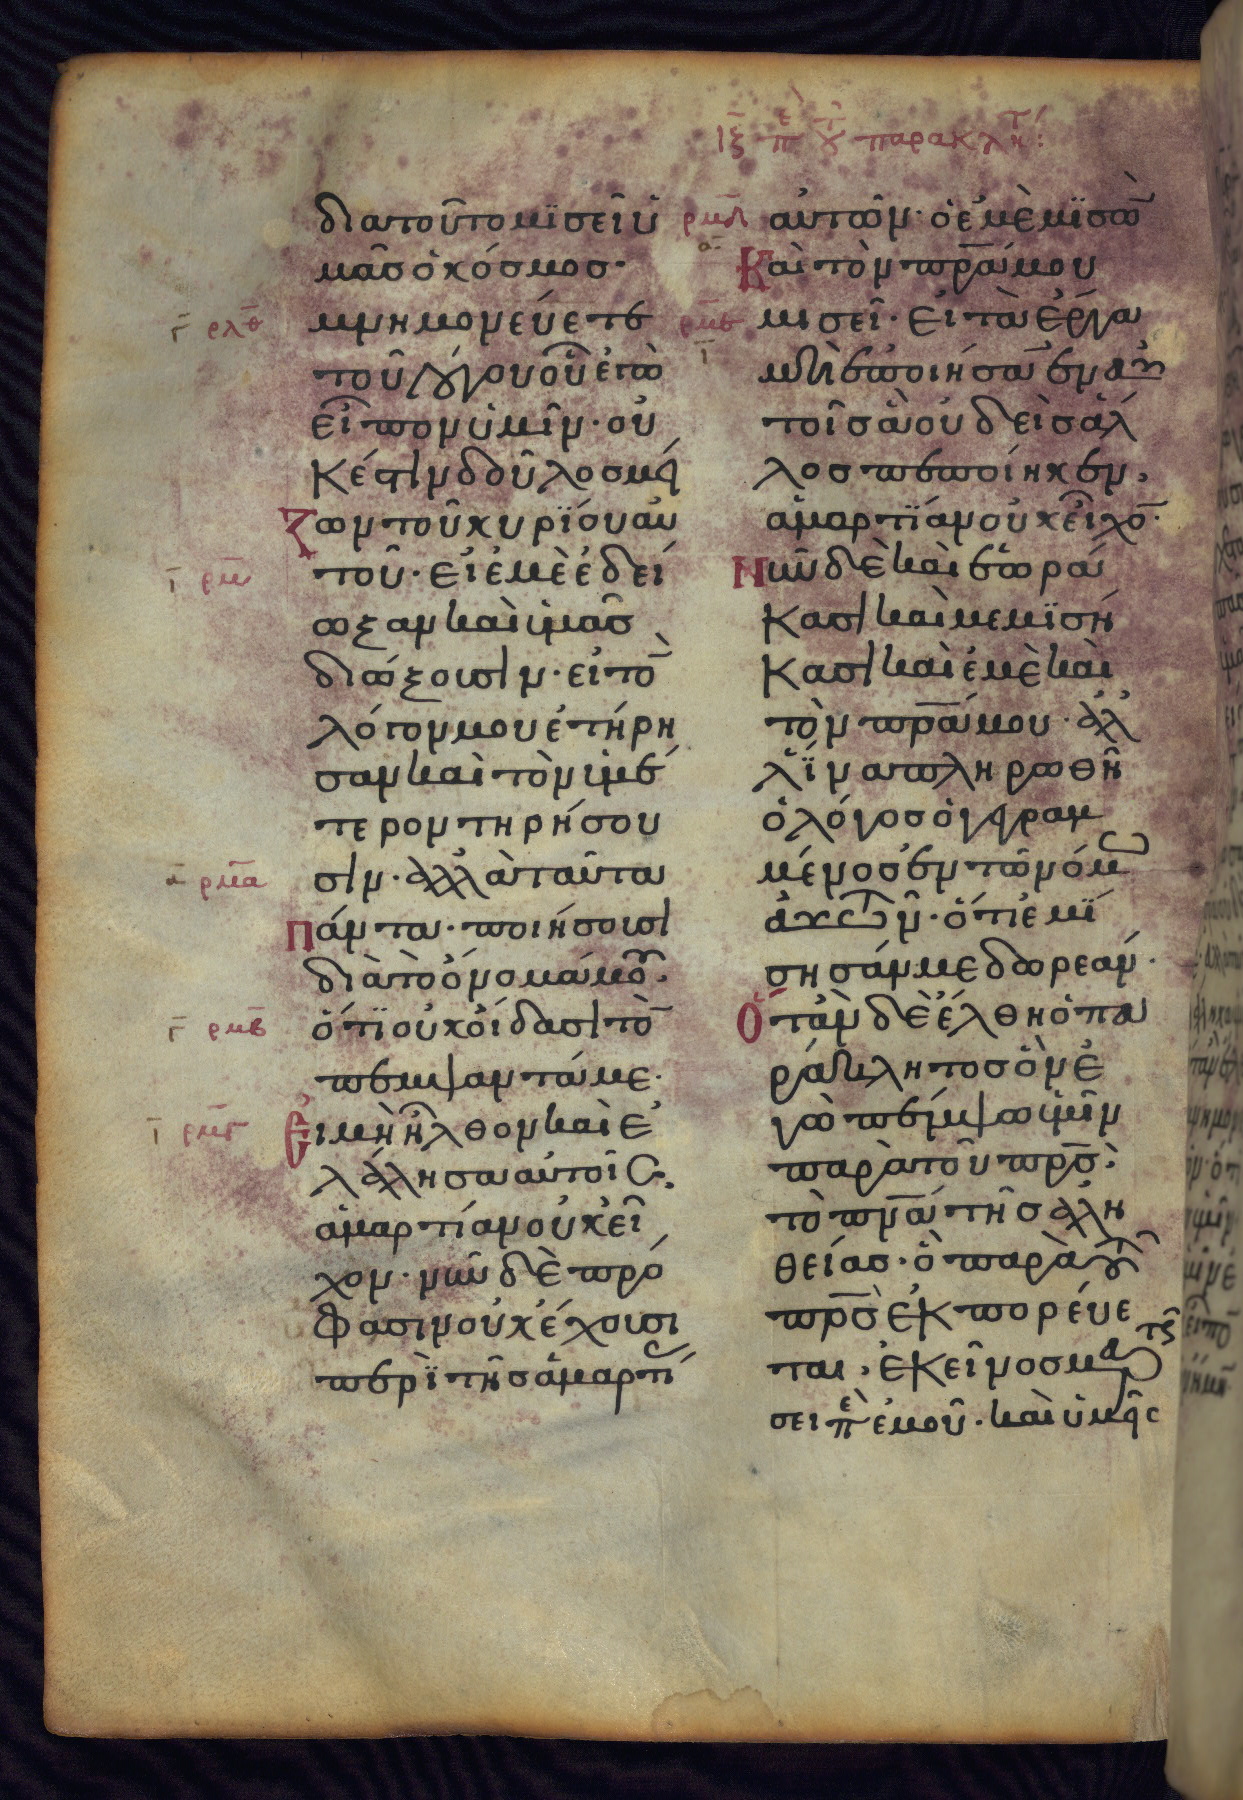 ιξ περὶ τοῦ παρακλήτ
διατοῦτο μϊσεῖ ὑ
μᾶσ ὁ κόσμοσ·
ρλθ μνημονεύετε
τοῦ λόγου οὗ ἐγὼ
εἶπον ὑμῖν· οὐ
κέστιν δοῦλοσ μεί
ζων τοῦ κυρϊου αὐ
ρμ τοῦ· εἰ ἐμὲ ἐδεί
ωξαν καὶ ὑμᾶσ
διώξουσιν· εἰ τὸ
λόγον μου ἐτήρη
σαν καὶ τὸν ὑμέ
τερον τηρήσου
ρμα σιν· ἀλλὰ ταῦτα
πάντα· ποιήσουσι
διὰ τὸ ὄνομά μου·
ρμβ ὅτϊ οὐκ οἴδασι τὸ
πέμψαντά με·
ρμγ Εἰ μὴ ἦλθον καὶ ἐ
λάλησα αὐτοῖς·
ἁμαρτίαν οὐκ εἶ
χον· νῦν δὲ πρό
φασιν οὐκ ἔχουσι
περὶ τῆσ ἁμαρτί
ρμδ αὐτῶν· ὁ ἐμὲ μϊσῶ
Καὶ τὸν πρα μου
ρμε μισεῖ· Εἰ τὰ ἔργα
μὴ ἐποιήσα ἐν αὐ
τοῖσ ἃ οὐδεὶσ ἄλ
λοσ πεποίηκεν,
ἁμαρτϊαν οὐκ εἶχο·
Νῦν δὲ καὶ ἑωρά
κασι καὶ μεμϊσή
κασι καὶ ἐμὲ καὶ
τὸν πρα μου· ἀλ
λ' ἵνα πληρωθῆ
ὁ λόγοσ ὁ γεγραμ
μένοσ ἐν τῶ νόμω
αὐτῶν· ὅτι ἐμϊ
σησάν με δωρεάν·
Ὅταν δὲ ἔλθη ὁ πα
ράκλητοσ ὃν ἐ
γὼ πέμψω ὑμῖν
παρὰ τοῦ πρσ·
τὸ πνα τῆσ ἀλη
θείασ· ὃ παρὰ τοῦ
πρσ ἐκπορεύε
ται, ἐκεῖνοσ μαρτυρή
σει περὶ ἐμοῦ· καὶ ὑμεῖς